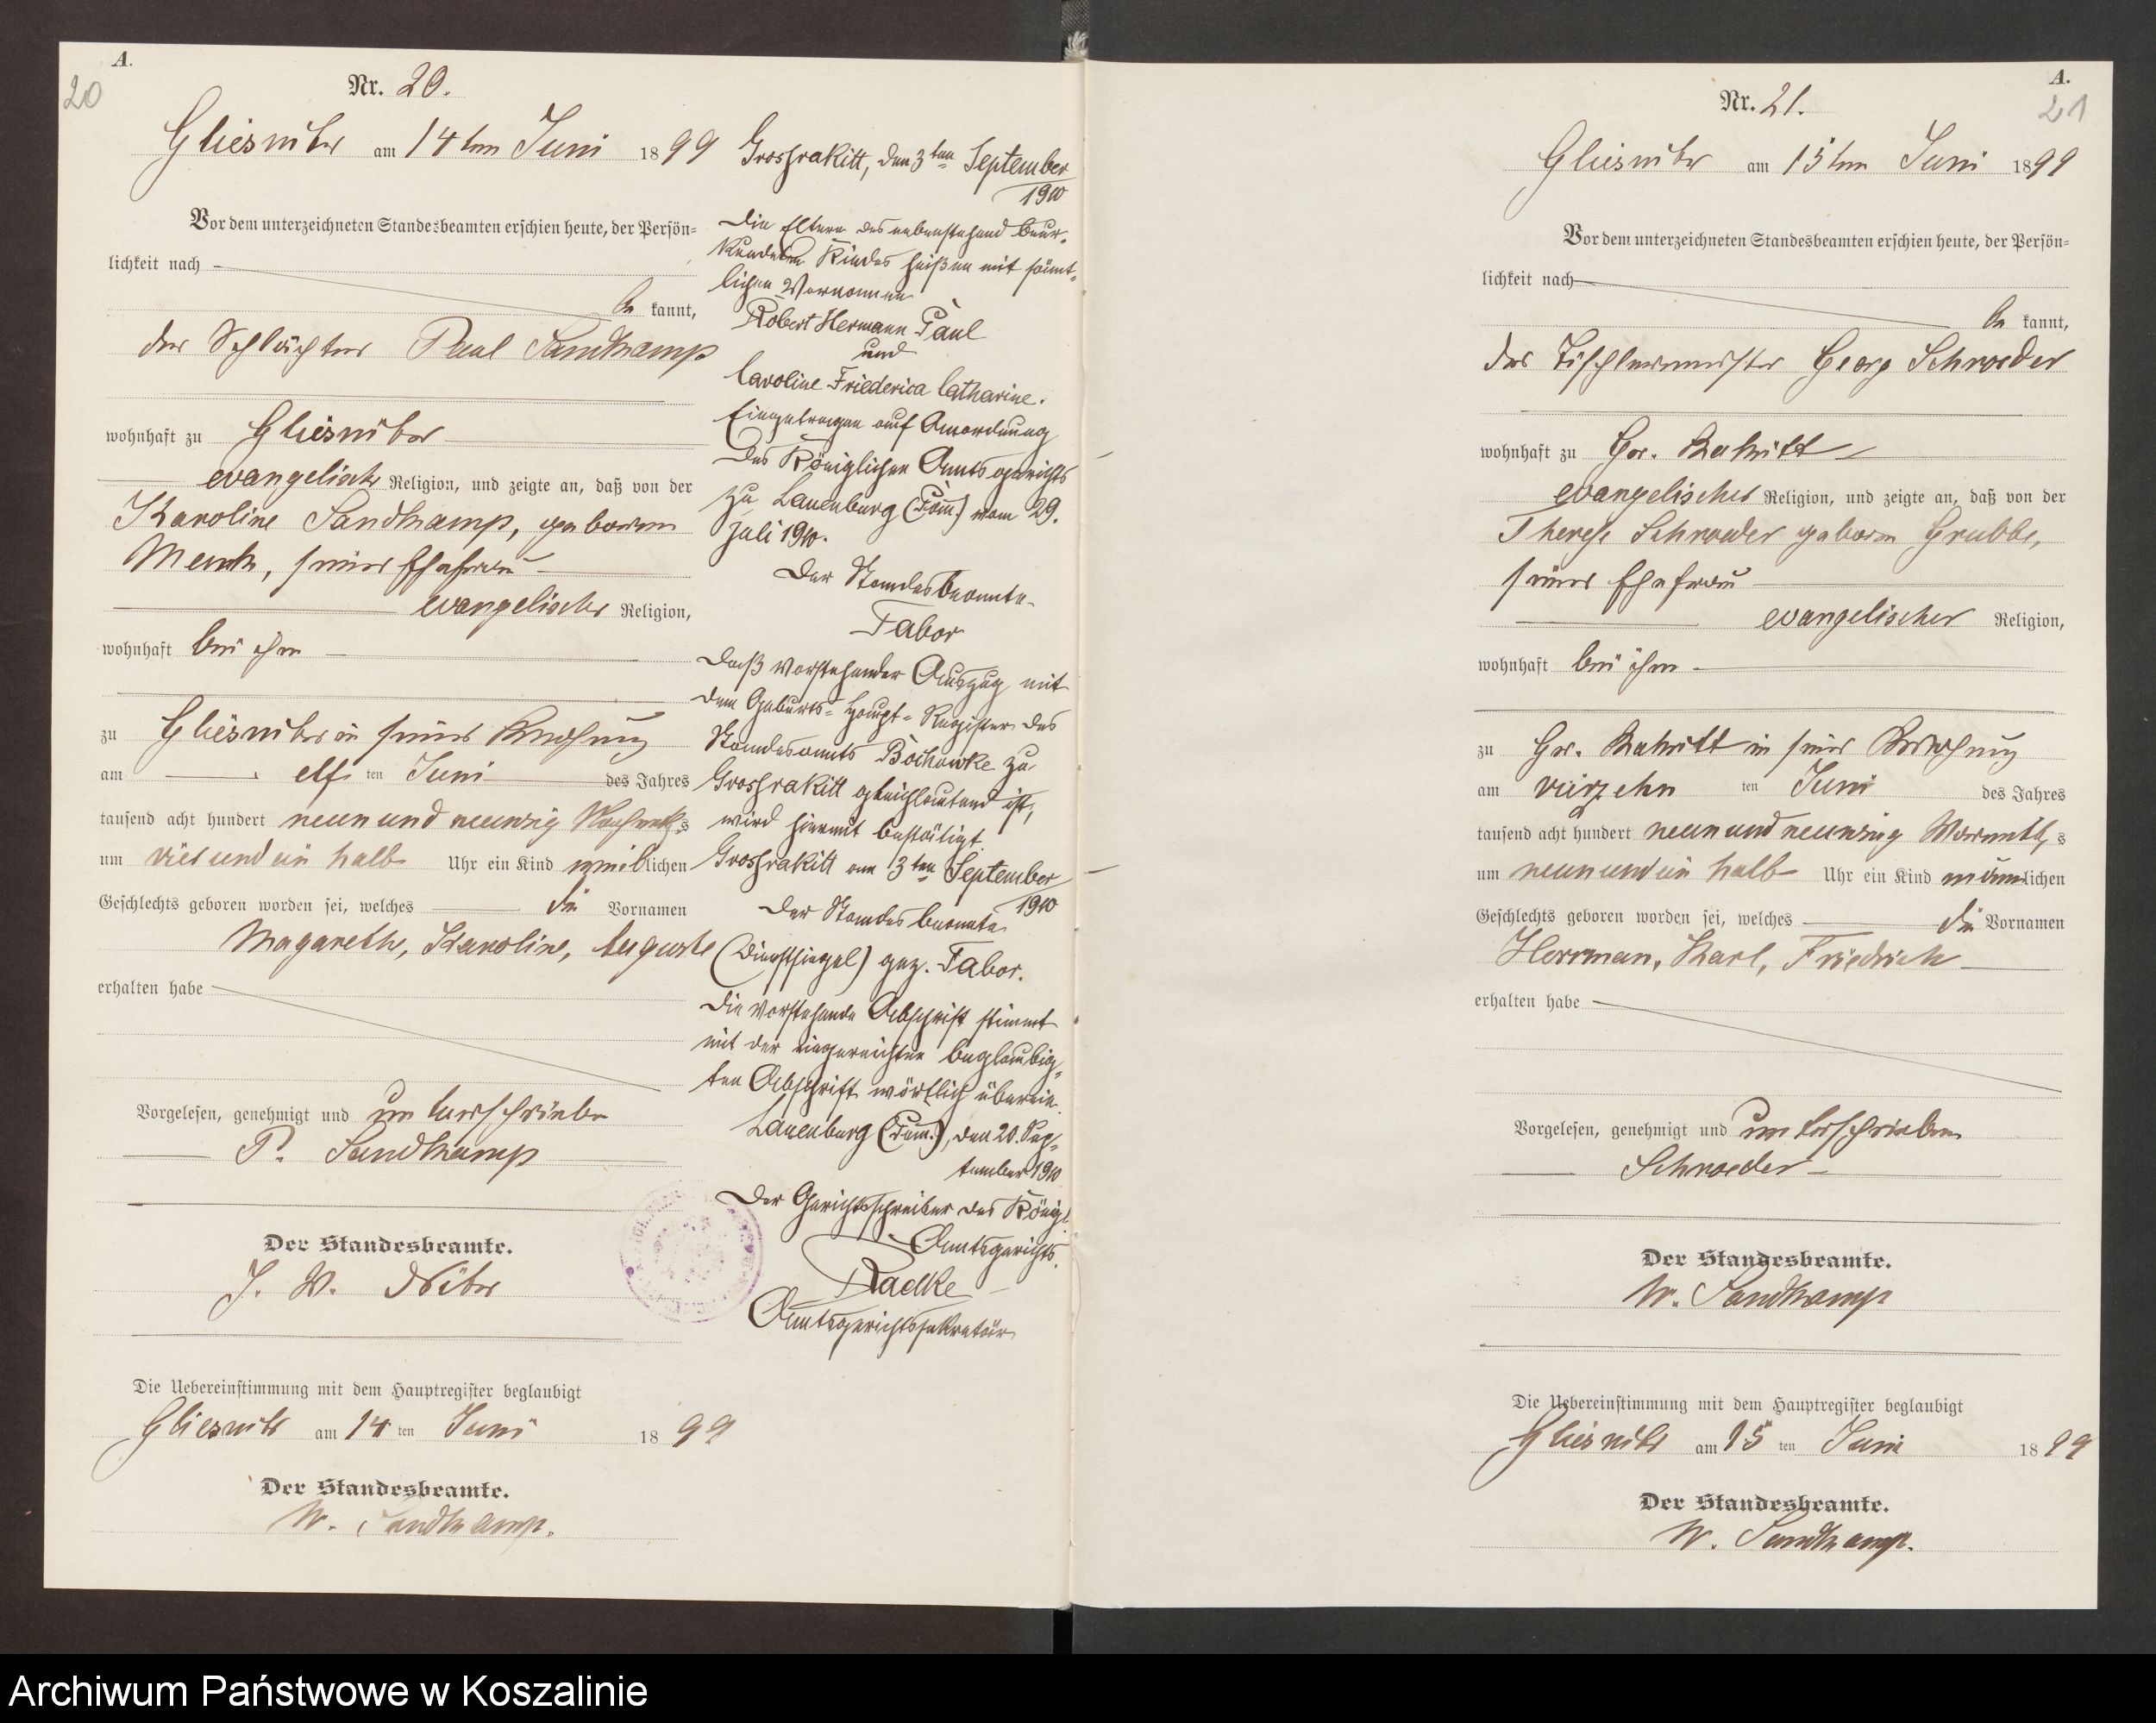 A.
20
Nr. 20.
Gliesnitz am 14ten Juni 1899
Vor dem unterzeichneten Standesbeamten erschien heute, der Persön=
lichkeit nach
be kannt,
der Schlächter Paul Sandkamp
wohnhaft zu Gliesnitz
evangelischer Religion, und zeigte an, daß von der
Karoline Sandkamp, geborenen
seiner Ehefrau
evangelischer Religion,
wohnhaft bei ihm
zu Gliesnitz in seiner Wohnung
am elf ten Juni des Jahres
tausend acht hundert neun und neunzig Nachmittags
um vier und ein halb Uhr ein Kind weiblichen
Geschlechts geboren worden sei, welches die Vornamen
Magarethe, Karoline, Auguste
erhalten habe
Vorgelesen, genehmigt und unterschrieben
P. Sandkamp
Der Standesbeamte.
J. V.
Die Uebereinstimmung mit dem Hauptregister beglaubigt
Gliesnitz am 14 ten Juni 1899
Der Standesbeamte.
W. Sandkamp.
Grossrakitt, den 3ten September
1910
Die Eltern des nebenstehend beur-
kundeten Kindes heißen mit sämt-
lichen Vornamen
Robert Hermann Paul
und
Caroline Friederica Catharine.
Eingetragen auf Anordnung
des Königlichen Amtsgerichts
zu Lauenburg (Pom.) vom 29.
Juli 1910.
Der Standesbeamte
Tabor
Daß vorstehender Auszug mit
dem Geburts-Haupt-Register des
Standesamts Bochowke zu
Grossrakitt gleichlautend ist,
wird hiermit bestätigt.
Grossrakitt am 3ten September
1910
Der Standesbeamte
(Dienstsiegel) gez. Tabor.
Die vorstehende Abschrift stimmt
mit der eingereichten beglaubig-
ten Abschrift wörtlich überein.
Lauenburg (Pom.), den 20. Sep-
tember 1910
Der Gerichtsschreiber des Königl.
Amtsgerichts.
Radke
Amtsgerichtssekretär
A.
21
Nr. 21.
Gliesnitz am 15ten Juni 1899
Vor dem unterzeichneten Standesbeamten erschien heute, der Persön=
lichkeit nach
be kannt,
der Tischlermeister Georg Schroeder
wohnhaft zu Gr. Rakitt
evangelischer Religion, und zeigte an, daß von der
Therese Schroeder geboren Grubbe,
seiner Ehefrau
evangelischer Religion,
wohnhaft bei ihm
zu Gr. Rakitt in seiner Wohnung
am vierzehn ten Juni des Jahres
tausend acht hundert neun und neunzig Vormittags
um neun und ein halb Uhr ein Kind männlichen
Geschlechts geboren worden sei, welches die Vornamen
Herrman, Karl, Friedrich
erhalten habe
Vorgelesen, genehmigt und unterschrieben
Schroeder
Der Standesbeamte.
W. Sandkamp
Die Uebereinstimmung mit dem Hauptregister beglaubigt
Gliesnitz am 15 ten Juni 1899
Der Standesbeamte.
W. Sandkamp.
Archiwum Państwowe w Koszalinie